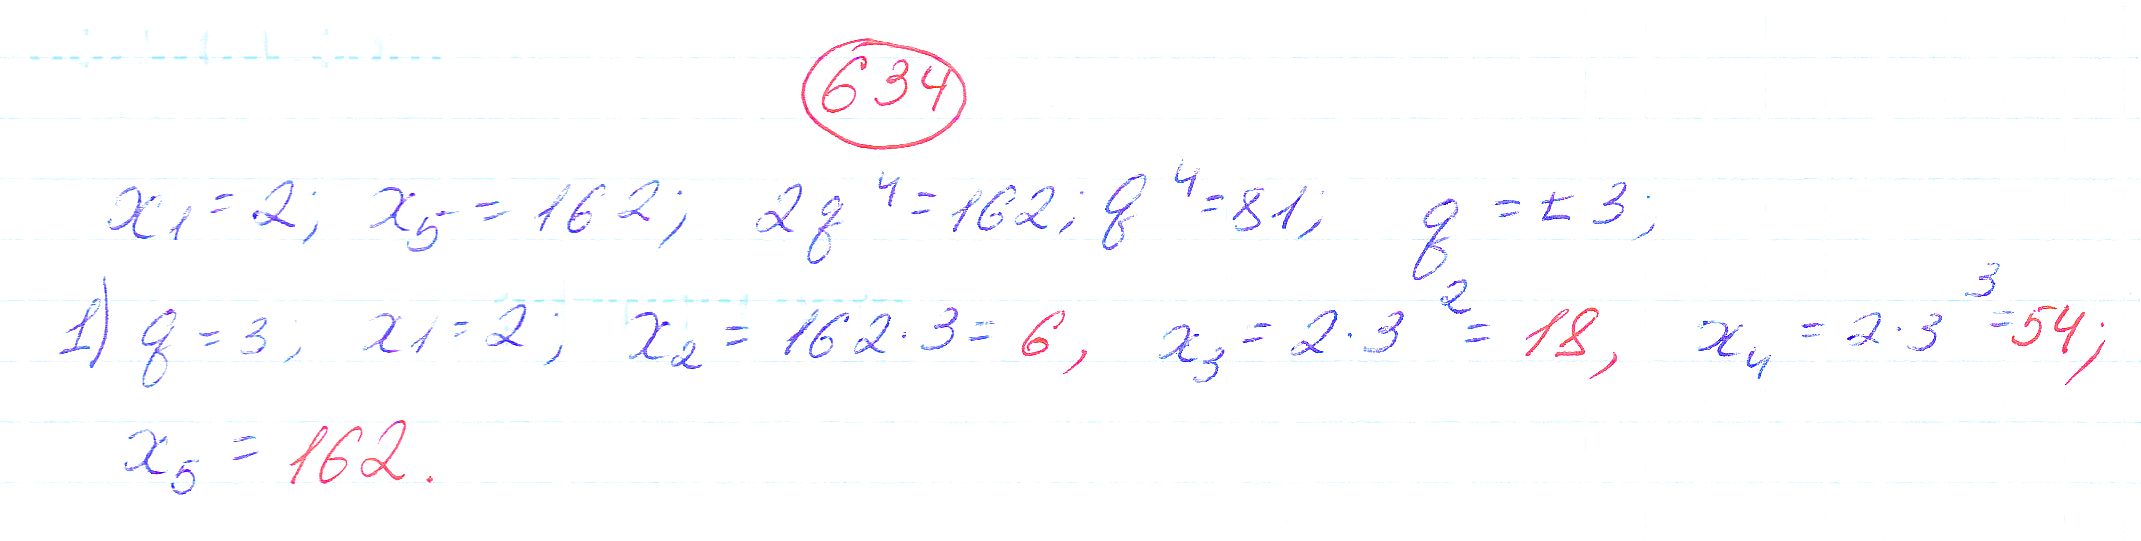 634
x₁ = 2; x₅ = 162; 2q⁴ = 162; q⁴ = 81; q = ± 3;
1) q = 3; x1 = 2; x₂ = 162 · 3 = 6, x₃ = 2 · 3² = 18, x₄ = 2 · 3³ = 54;
x₅ = 162.